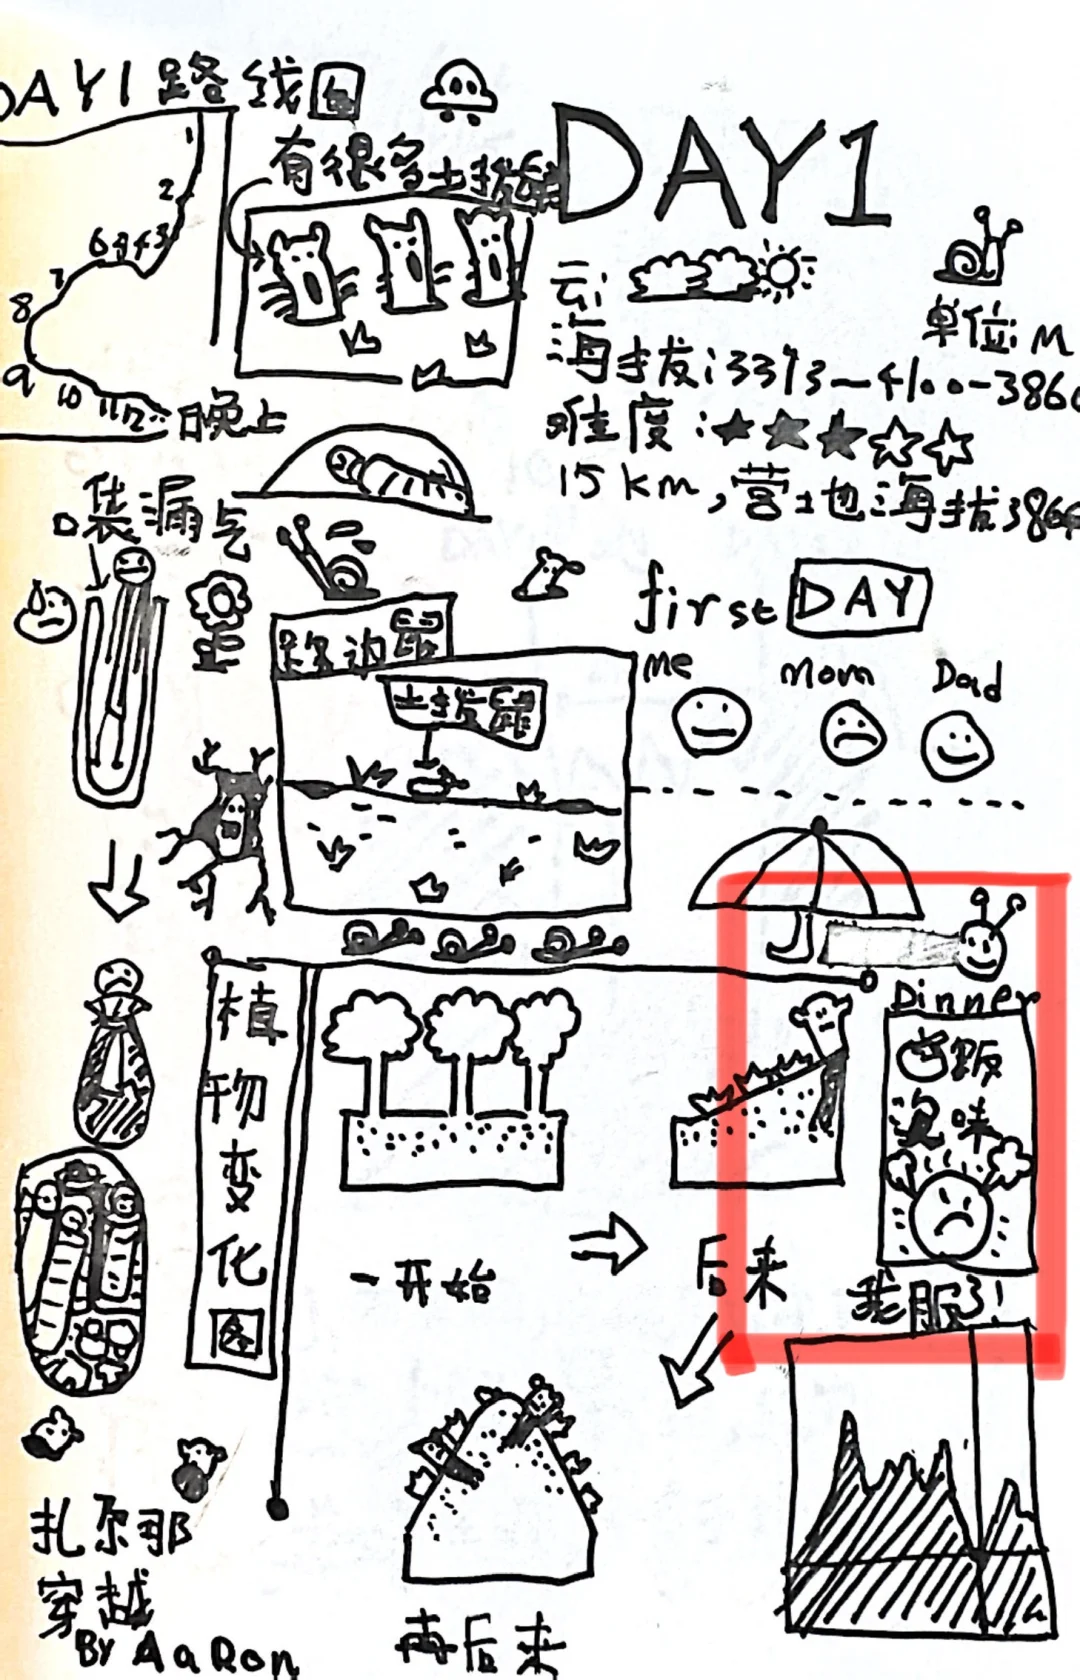 DAY1路线图
有很多土拨鼠
1
2
6 5 4 3
7
8
9
10
11 12
晚上
DAY1
云:
单位:M
海拔:3373-4100-386
难度:★★★☆☆
15km,营地海拔386
口袋漏气
first DAY
me
Mom
Dad
路边鼠
土拨鼠
植物变化图
一开始
后来
再后来
Dinner
没味
我服了!
扎尔那
穿越
By AaRon